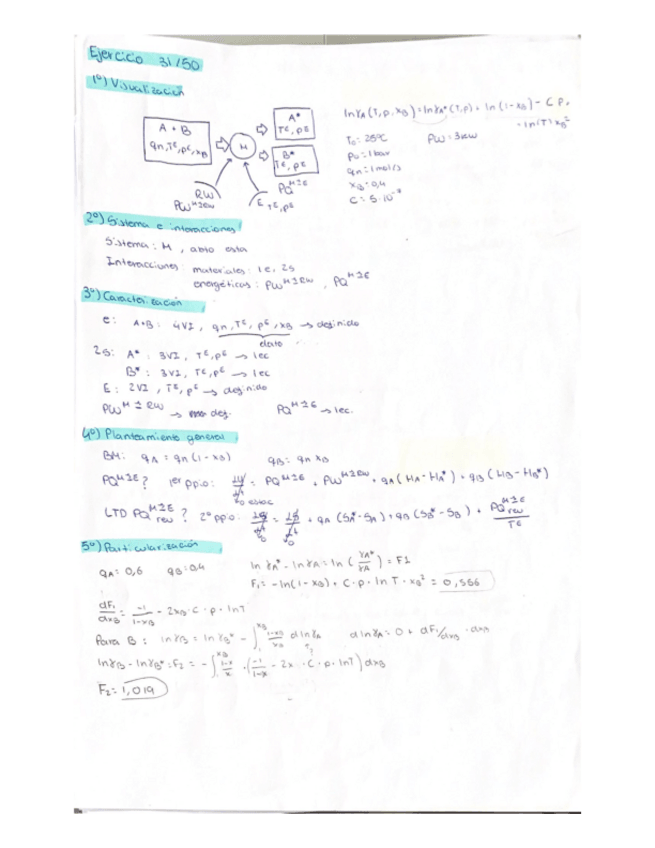 Ejercicio 31/50
1º) Visualización
A + B
qn, Tᴱ, pᴱ, xB
M
A*
Tᴱ, pᴱ
B*
Tᴱ, pᴱ
RW
PW^M⇌RW
PQ^M⇌E
E Tᴱ, pᴱ
ln γA (T, p, xB) = ln γA* (T, p) + ln (1-xB) - C p ·
· ln(T) xB²
T₀ = 25ºC
PW = 3 kW
p₀ = 1 bar
qn = 1 mol/s
xB = 0,4
2º) Sistema e interacciones
Sistema: M, abto esta
Interacciones: materiales: 1e, 2s
energéticas: PW^M⇌RW, PQ^M⇌E
3º) Caracterización
e: A+B: 4VI, qn, Tᴱ, pᴱ, xB → definido
dato
2s: A*: 3VI, Tᴱ, pᴱ → 1ec
B*: 3VI, Tᴱ, pᴱ → 1ec
E: 2VI, Tᴱ, pᴱ → definido
PW^M⇌RW → def.
PQ^M⇌E → 1ec.
4º) Planteamiento general
BM: qA = qn (1-xB) qB = qn xB
PQ^M⇌E? 1er ppio: = PQ^M⇌E + PW^M⇌RW + qA (HA - HA*) + qB (HB - HB*)
0 estac
LTD PQ rev^M⇌E? 2º ppio: = + qA (SA* - SA) + qB (SB* - SB) + PQ rev^M⇌E / Tᴱ
5º) Particularización
qA = 0,6 qB = 0,4
ln γA* - ln γA = ln (γA*/γA) = F1
F₁ = -ln(1-xB) + C · p · ln T · xB² = 0,566
dF₁/dxB = -1/1-xB - 2xB · C · p · lnT
Para B: ln γB = ln γB* - ∫ xB 1-xB/xB d ln γA
d ln γA = 0 + dF₁/dxB · dxB
ln γB - ln γB* = F₂ = - ∫ xB 1-x/x · (-1/1-x - 2x · C · p · lnT) dxB
F₂ = 1,019